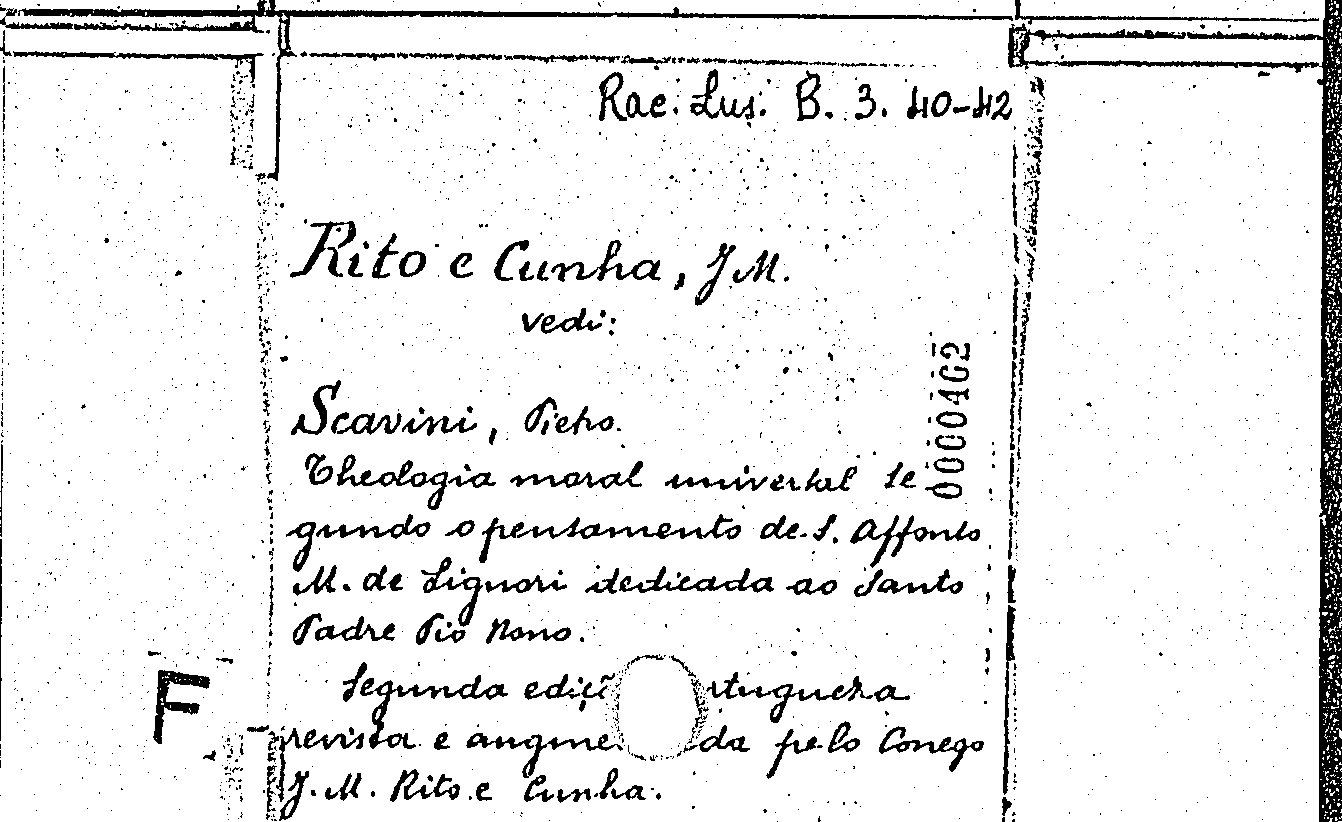 Rac. Lus. B. 3. 40-42
Rito e Cunha, J. M.
vedi:
0000462
Scavini, Pietro.
Theologia moral universal se
gundo o pensamento de S. Affonso
M. de Liguori dedicada ao Santo
Padre Pio Nono.
F
Segunda ediçã rtugueza
revista e augme da pelo Conego
J. M. Rito e Cunha.